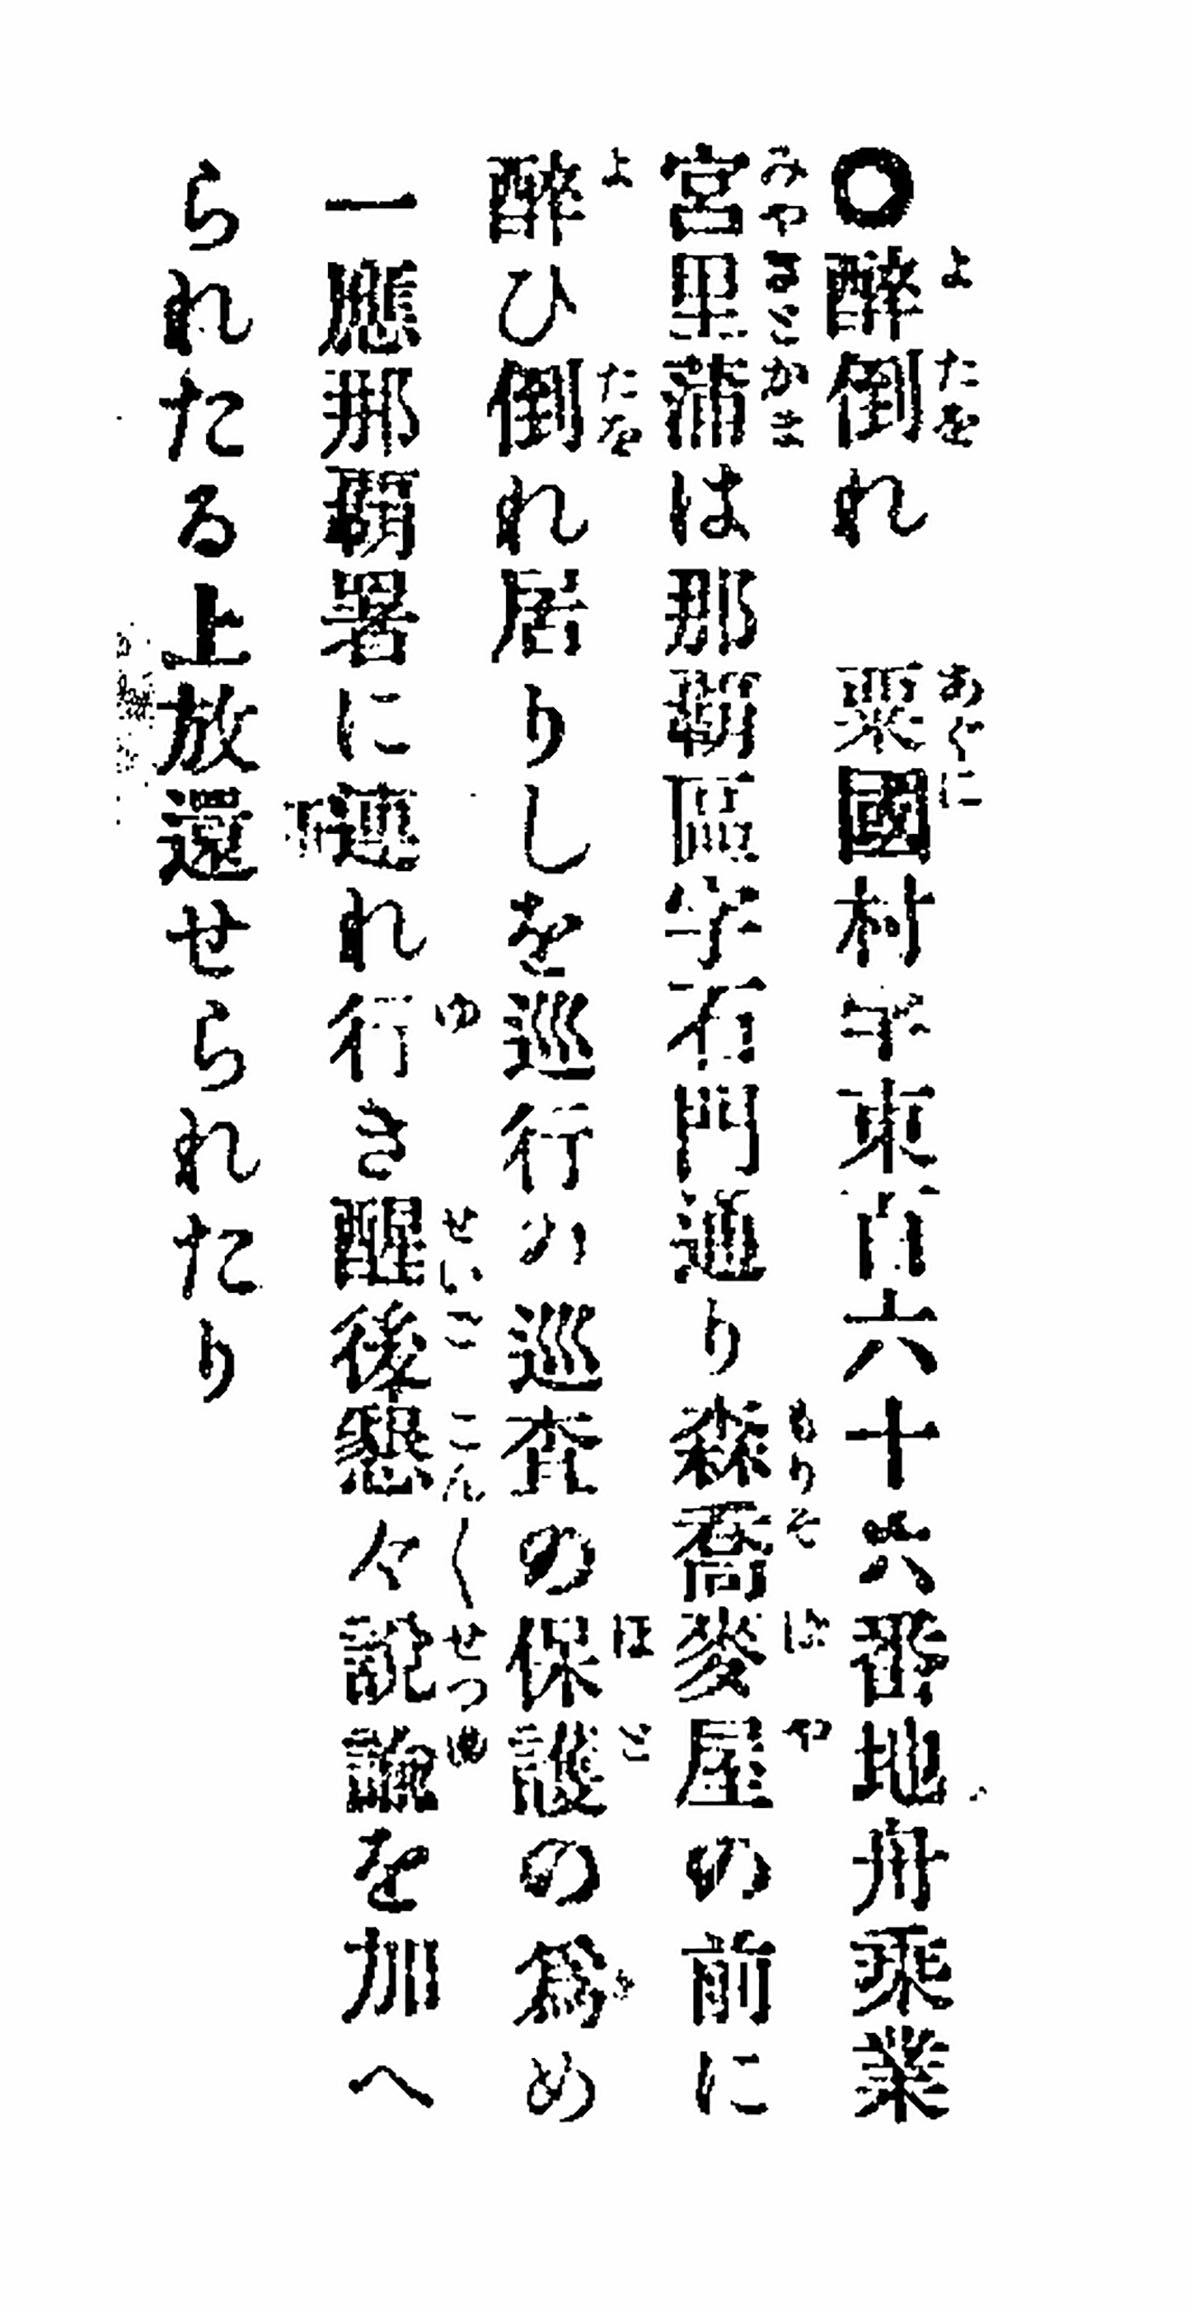 ○醉倒れ　粟國村字東百六十六番地舟乘業
宮里蒲は那覇區字石門通り森喬麥屋の前に
醉ひ倒れ居りしを巡行の巡査の保護の爲め
一應那覇署に連れ行き醒後懇々説諭を加へ
られたる上放還せられたり